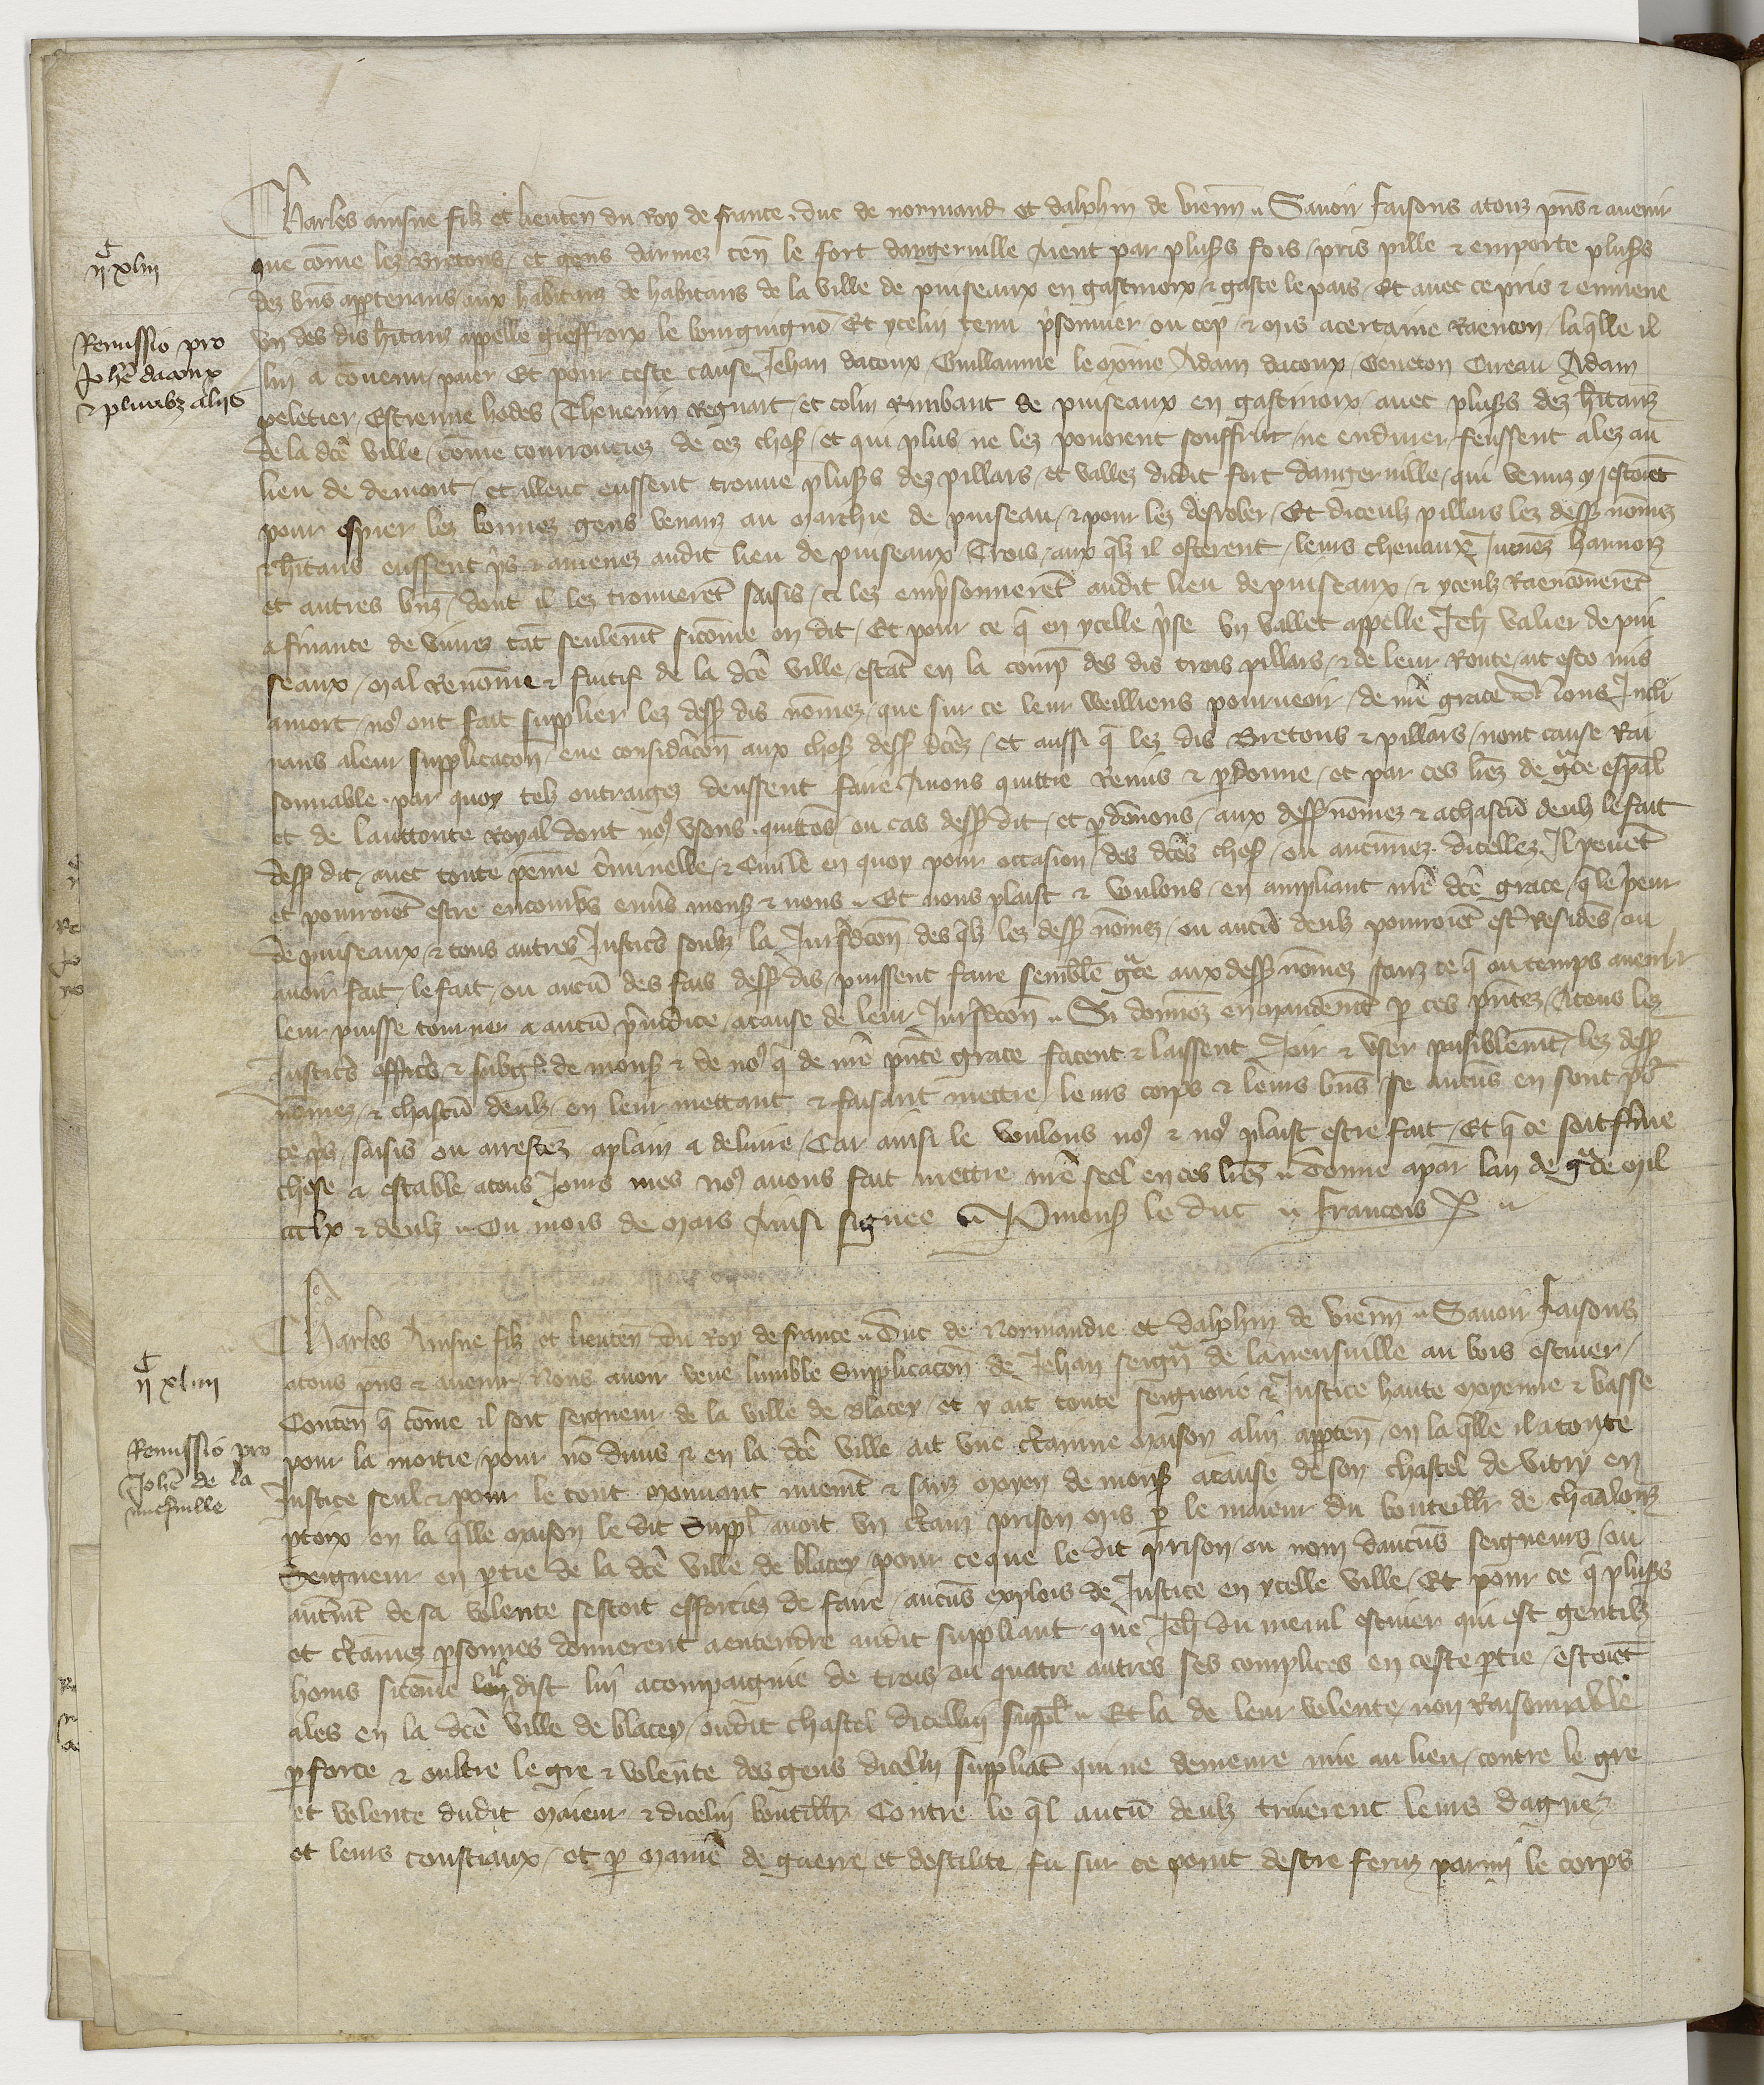 Charles ainsne filz et lieuten̄ du Roy de france duc de normand et dalphin de vienn̄ Sauoir faisons a touz pn̄s & auenir
ijᶜ xliij
que cōme lez Bretons et gens darmez ten̄ le fort dangeruille aient par plus̄s fois pris pille & emporte plus̄s
dez bn̄s appertenans aux habitanz de habitans de la ville de puiseaux en gastinoix & gaste le pais Et auec ce pris & enmene
Remissio pro
Joh̄e dacoux
& pluribz alijs
vn des dis h̄itanz appelle gieffroix le bourguignō Et ycelui tenu p̄sonnier ou cep & mis a certaine Raencon laq̄lle il
lui a conuenu paier Et pour ceste cause Jehan dacoux Guillaume le Adam dacoux Cureau Adam
peletier Estienne hodes Theuenin Regnart et colin Rimbaut de puiseaux en gastinoix auec plus̄s dez h̄itanz
de la dc̄e ville cōme courrouciez de cez chos̄ et qui plus ne lez pouoient souffrir ne endurer feussent alez au
lieu de demont et illeuc eussent trouue plus̄s dez pillars et vallez dudit fort dangeruille qui venuz y estoiēt
pour espier lez bonnez gens venanz au marchie de puiseaux & pour les desrober Et diceulz pillars lez dess̄ nōmez
& h̄itans eussent p̄s & amenez audit lieu de puiseaux Trois aux q̄lz il osterent leurs cheuaux Jumēs harnoiz
et autres bn̄z dont il lez trouuerēt saisis & lez emp̄sonnerēt audit lieu de puiseaux & yceulz Raenconnerēt
a finance de viures tāt seulemēt sicōme on dit Et pour ce q̄ en ycelle p̄se vn vallet appelle Jeh̄ valier de pui
seaux mal Renōme & fuitif de la dc̄e ville estāt en la comp̄ des dis trois pillars & de leur Route ait este mis
a mort no9 ont fait supplier lez dess̄ dis nōmez que sur ce leur weilliens pourueoir de nr̄e grace Nous Incli
nans a leur supplicacōn eue consid̄acōn aux chos̄ dess̄ dc̄ez et aussi q̄ lez dis Bretons & pillars nont cause Rai
sonnable par quoy telz outraigez deussent faire Auons quittie Remis & p̄donne et par ces lr̄es de gr̄ce esp̄al
et de lauttorite Royal dont no9 vsons quittōs ou cas dess̄ dit et p̄dōnons aux dess̄ nōmez & a chascū deulz le fait
dess̄ dit auec toute peinne c̄iminelle & Ciuile en quoy pour occasion des dc̄es chos̄ ou aucunez dicellez Il peuēt
et pourroiēt estre encouruz enūs mons̄ & nous Et nous plaist & voulons en ampliant nr̄e dc̄e grace q̄ le p̄eur
de puiseaux & tous autres Justic̄s soubz la Juris̄dcōn des q̄lz lez dess̄ nōmez ou aucū deulz pourroiēt est̄ Residēs ou
auoir fait le fait ou aucū des fais dess̄ dis puissent faire semblē gr̄ce aux dess̄ nōmez sanz ce q̄ ou temps auenir
leur puisse tourner a aucū p̄iudice a cause de leur Juris̄dcōn Si donnōs en mandemēt p̄ ces pn̄tez A tous lez
Justic̄s offic̄s & subgīz de mons̄ & de no9 q̄ de nr̄e pn̄te grace facent & laissent Joir & vser paisiblemēt lez dess̄
nōmez & chascū deulz en leur mettant & faisant mettre leurs corps & leurs bn̄s se aucūs en sont po9
ce p̄s saisis ou arrestez a plain a deliure Car ainsi le voulons no9 & no9 plaist estre fait Et q̄ ce soit f̄me
chose & estable a tous Jours mes no9 auons fait mettre nr̄e seel en ces lr̄es Donne a par lan de gr̄ce mil
ccclx & deulz Ou mois de mars Ainsi signee P̄ mons̄ le duc francois x̄
Charles Ainsne filz et lieuten̄ du Roy de france Duc de Normandie et dalphin de vienn̄ Sauoir faisons
ijᶜ xliiij
a tous pn̄s & auenir Nous auoir veue lumble Supplicacōn de Jehan seign̄r de laneufuille au bois escuier
Conten̄ q̄ cōme il soit seigneur de la ville de Blacey et y ait toute seignorie & Justice haute moyenne & basse
Remissio pro
Joh̄e de la
nuefuille
pour la moitie pour nō diuis & en la dc̄e ville ait vne c̄taine maison a lui app̄ten̄ en la q̄lle il a toute
Justice seul & pour le tout mouuant nuemēt & sanz moyen de mons̄ a cause de son chastel de vitry en
p̄toix en la q̄lle maison le dit Suppl̄ auoit vn c̄tain prison mis p̄ le maieur du bouteill̄r de chaalonz
Seigneur en p̄tie de la dc̄e ville de blacey pour ce que le dit prison ou nom daucūs seigneurs ou
aut̄mēt de sa volente sestoit efforciez de faire aucūs explois de Justice en ycelle ville Et pour ce q̄ plus̄s
et c̄tainez p̄sonnes donnerent a entendre audit suppliant que Jeh̄ du mesnil escuier qui est gentilz
homs sicōme leu dist lui acompaignie de trois ou quatre autres ses complices en ceste p̄tie estoiēt
ales en la dc̄e ville de blacey oudit chastel dicellui suppl̄ Et la de leur volente non Raisonnable
p̄ force & oultre le gre & volente des gens dicelui suppliāt qui ne demeure mie au lieu contre le gre
et volente dudit maieur & dicelui bouteill̄r Contre le q̄l aucū deulz traierent leurs dagues
et leurs cousteaux et p̄ manie᷑ de guerre et dostilite fu sur ce point destre feruz parmi le corps